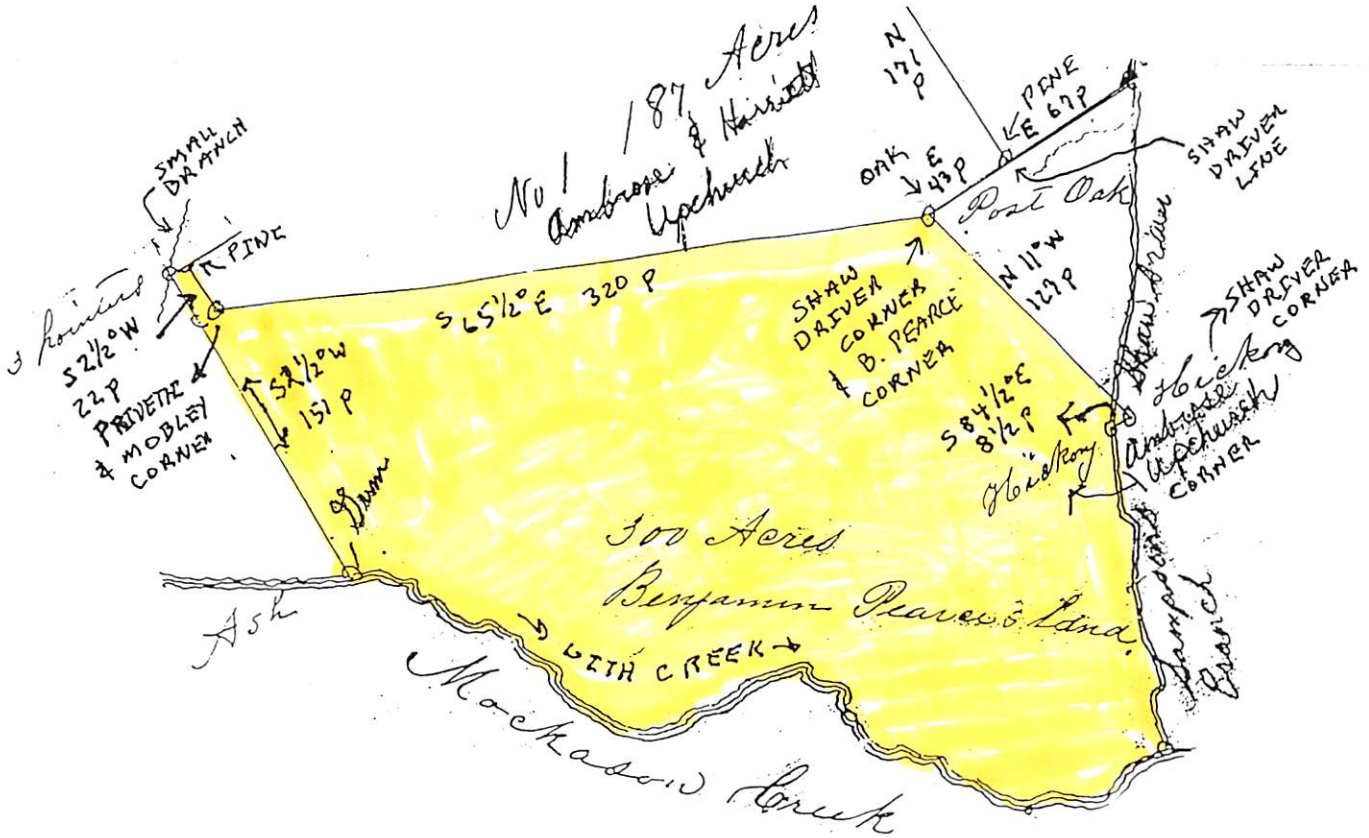 SMALL
BRANCH
PINE
3 pointers
S 2 1/2° W
22 P
PRIVETTE
& MOBLEY
CORNER
S 2 1/2° W
151 P
Gum
Ash
No 1 187 Acres
Ambrose & Harriett
Upchurch
S 65 1/2° E 320 P
N
171
P
PINE
E 67 P
OAK
E
43 P
Post Oak
SHAW
DRIVER
LINE
N 11° W
129 P
SHAW
DRIVER
CORNER
& B. PEARCE
CORNER
Shaw Driver
SHAW
DRIVER
CORNER
Hickory
Ambrose
Upchurch
CORNER
S 84 1/2° E
8 1/2 P
Hickory
300 Acres
Benjamin Pearce's Land
WITH CREEK
Mockason Creek
Sampsons
Branch